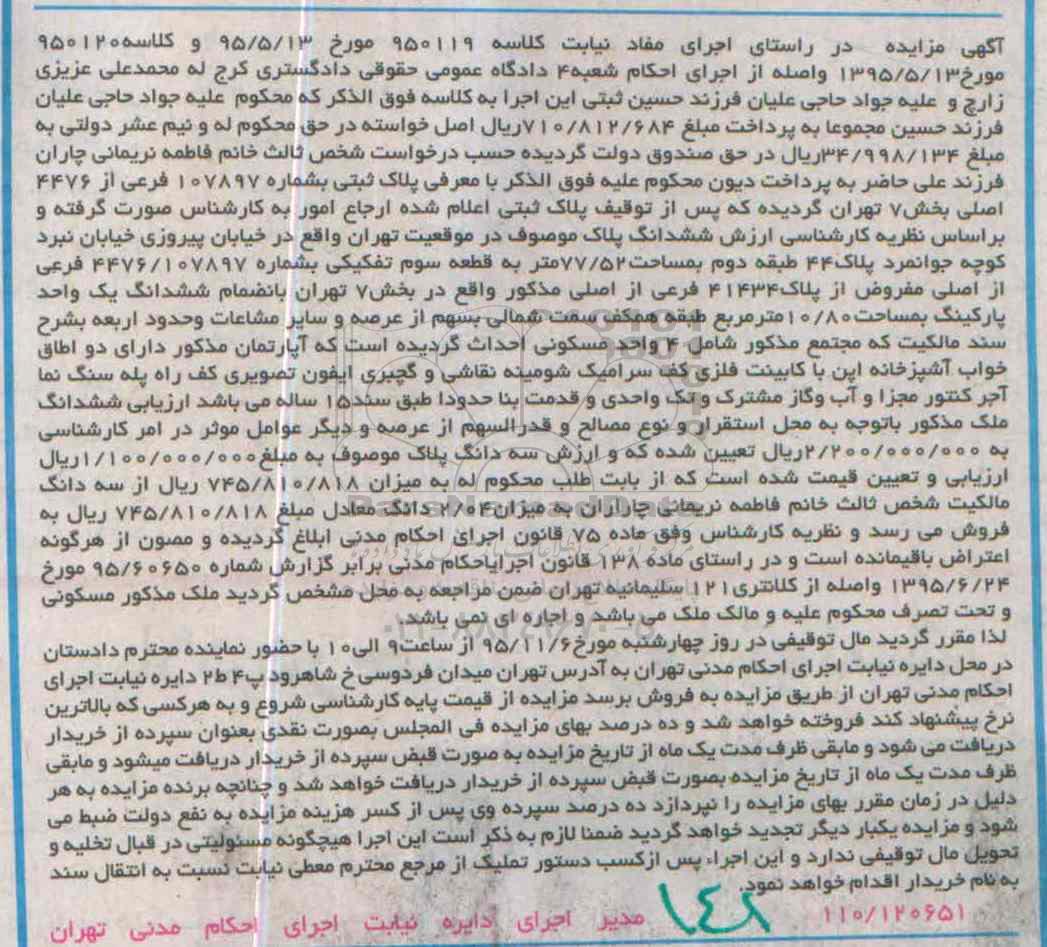 آگهی مزایده در راستای اجرای مفاد نیابت کلاسه ۹۵۰۱۱۹ مورخ ۹۵/۵/۱۳ و کلاسه۹۵۰۱۲۰
مورخ۱۳۹۵/۵/۱۳ واصله از اجرای احکام شعبه۴ دادگاه عمومی حقوقی دادگستری کرج له محمدعلی عزیزی
زارچ و علیه جواد حاجی علیان فرزند حسین ثبتی این اجرا به کلاسه فوق الذکر که محکوم علیه جواد حاجی علیان
فرزند حسین مجموعا به پرداخت مبلغ ۷۱۰/۸۱۲/۶۸۴ریال اصل خواسته در حق محکوم له و نیم عشر دولتی به
مبلغ ۳۴/۹۹۸/۱۳۴ریال در حق صندوق دولت گردیده حسب درخواست شخص ثالث خانم فاطمه نریمانی چاران
فرزند علی حاضر به پرداخت دیون محکوم علیه فوق الذکر با معرفی پلاک ثبتی بشماره ۱۰۷۸۹۷ فرعی از ۴۴۷۶
اصلی بخش۷ تهران گردیده که پس از توقیف پلاک ثبتی اعلام شده ارجاع امور به کارشناس صورت گرفته و
براساس نظریه کارشناسی ارزش ششدانگ پلاک موصوف در موقعیت تهران واقع در خیابان پیروزی خیابان نبرد
کوچه جوانمرد پلاک۴۴ طبقه دوم بمساحت۷۷/۵۲متر به قطعه سوم تفکیکی بشماره ۴۴۷۶/۱۰۷۸۹۷ فرعی
از اصلی مفروض از پلاک۴۱۴۳۴ فرعی از اصلی مذکور واقع در بخش۷ تهران بانضمام ششدانگ یک واحد
پارکینگ بمساحت۱۰/۸۰مترمربع طبقه همکف سمت شمالی بسهم از عرصه و سایر مشاعات وحدود اربعه بشرح
سند مالکیت که مجتمع مذکور شامل ۴ واحد مسکونی احداث گردیده است که آپارتمان مذکور دارای دو اطاق
خواب آشپزخانه اپن با کابینت فلزی کف سرامیک شومینه نقاشی و گچبری ایفون تصویری کف راه پله سنگ نما
آجر کنتور مجزا و آب وگاز مشترک و تک واحدی و قدمت بنا حدودا طبق سند۱۵ ساله می باشد ارزیابی ششدانگ
ملک مذکور باتوجه به محل استقرار و نوع مصالح و قدرالسهم از عرصه و دیگر عوامل موثر در امر کارشناسی
به ۲/۲۰۰/۰۰۰/۰۰۰ریال تعیین شده که و ارزش سه دانگ پلاک موصوف به مبلغ۱/۱۰۰/۰۰۰/۰۰۰ریال
ارزیابی و تعیین قیمت شده است که از بابت طلب محکوم له به میزان ۷۴۵/۸۱۰/۸۱۸ ریال از سه دانگ
مالکیت شخص ثالث خانم فاطمه نریمانی چاراران به میزان۲/۰۴ دانگ معادل مبلغ ۷۴۵/۸۱۰/۸۱۸ ریال به
فروش می رسد و نظریه کارشناس وفق ماده ۷۵ قانون اجرای احکام مدنی ابلاغ گردیده و مصون از هرگونه
اعتراض باقیمانده است و در راستای ماده ۱۳۸ قانون اجرایاحکام مدنی برابر گزارش شماره ۹۵/۶۰۶۵۰ مورخ
۱۳۹۵/۶/۲۴ واصله از کلانتری۱۲۱ سلیمانیه تهران ضمن مراجعه به محل مشخص گردید ملک مذکور مسکونی
و تحت تصرف محکوم علیه و مالک ملک می باشد و اجاره ای نمی باشد.
لذا مقرر گردید مال توقیفی در روز چهارشنبه مورخ۹۵/۱۱/۶ از ساعت۹ الی۱۰ با حضور نماینده محترم دادستان
در محل دایره نیابت اجرای احکام مدنی تهران به آدرس تهران میدان فردوسی خ شاهرود پ۴ ط۲ دایره نیابت اجرای
احکام مدنی تهران از طریق مزایده به فروش برسد مزایده از قیمت پایه کارشناسی شروع و به هرکسی که بالاترین
نرخ پیشنهاد کند فروخته خواهد شد و ده درصد بهای مزایده فی المجلس بصورت نقدی بعنوان سپرده از خریدار
دریافت می شود و مابقی ظرف مدت یک ماه از تاریخ مزایده به صورت قبض سپرده از خریدار دریافت میشود و مابقی
ظرف مدت یک ماه از تاریخ مزایده بصورت قبض سپرده از خریدار دریافت خواهد شد و چنانچه برنده مزایده به هر
دلیل در زمان مقرر بهای مزایده را نپردازد ده درصد سپرده وی پس از کسر هزینه مزایده به نفع دولت ضبط می
شود و مزایده یکبار دیگر تجدید خواهد گردید ضمنا لازم به ذکر است این اجرا هیچگونه مسئولیتی در قبال تخلیه و
تحویل مال توقیفی ندارد و این اجراء پس ازکسب دستور تملیک از مرجع محترم معطی نیابت نسبت به انتقال سند
به نام خریدار اقدام خواهد نمود.
۱۱۰/۱۲۰۶۵۱ ۱۴۸
مدیر اجرای دایره نیابت اجرای احکام مدنی تهران